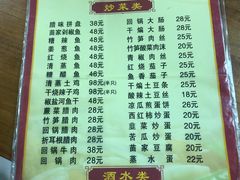 炒菜类
腊味拼盘 38元
苗家剁椒鱼 48元
糟辣鱼 48元
姜葱鱼 48元
红烧鱼 48元
清蒸鱼 48元
糖醋鱼 48元
清蒸土鸡 98元(半只)
干烧辣子鸡 98元(半只)
椒盐河鱼干 48元
蕨菜腊肉 28元
竹笋腊肉 28元
回锅腊肉 28元
折耳根腊肉 28元
回锅牛肉 38元
回锅肉 28元
回锅大肠 28元
干煸大肠 28元
竹笋肉丝 25元
竹笋酸菜肉沫 20元
青椒肉丝 25元
红烧茄子 25元
鱼香茄子 25元
干煸土豆条 25元
酸辣土豆丝 18元
凉瓜煎蛋饼 26元
西红柿炒蛋 20元
韭菜炒蛋 20元
苦瓜炒蛋 20元
苗家豆腐 20元
蒸水蛋 22元
酒水类